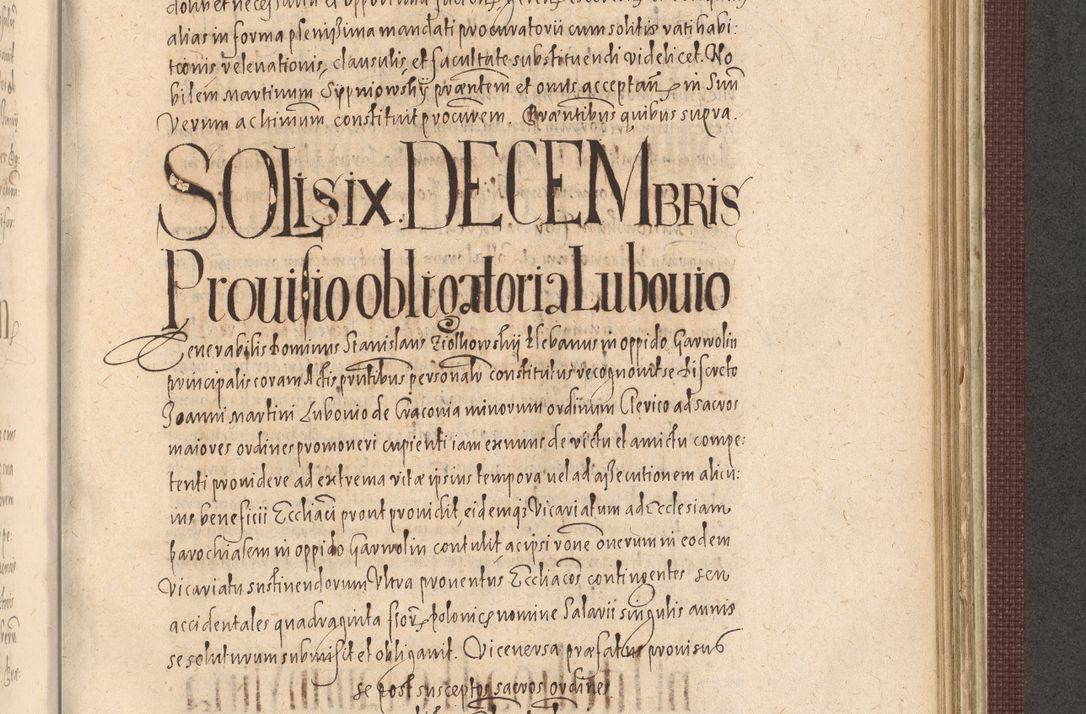 alias in forma plenissima mandati procuratorii cum solitis rati habi:
tionis relevationis, clausulis, et facultate substituendi videlicet. No
bilem Martinum Sypniowskÿ præntem et onus acceptan̄ in Sum̄
Verum ac himum̄ constituit procurem. Præntibus quibus supra.
SOLIS IX. DECEMBRIS
Prouisio obligatoria Lubouio
Venerabilis Dominus Stanislaus Ziolkowskij Plebanus in oppido Garwolin
principalis coram Actis pntibus personalr constitutus recognouit se Discreto
Joanni Martini Lubouio de Cracouia minorum ordinum Clerico ad sacros
maiores ordines promoueri cupienti iam ex nunc de victu et amictu compe:
tenti prouidere ad extrema vitæ ipsius tempora uel ad assecutionem alicu:
ius beneficii Eccliaci prout prouidit, eidemq3 Vicariatum ad Ecclesiam
parochialem in oppido Garwolin contulit ac ipsi rone onerum in eodem
Vicariatu sustinendorum Ultra prouentus Eccliacos contingentes seu
accidentales quadraginta flor. polonic nomine Salarii singulis annis
se soluturum submisit et obligauit. Vice uersa præfatus prouisus
se post susceptos sacros ordines